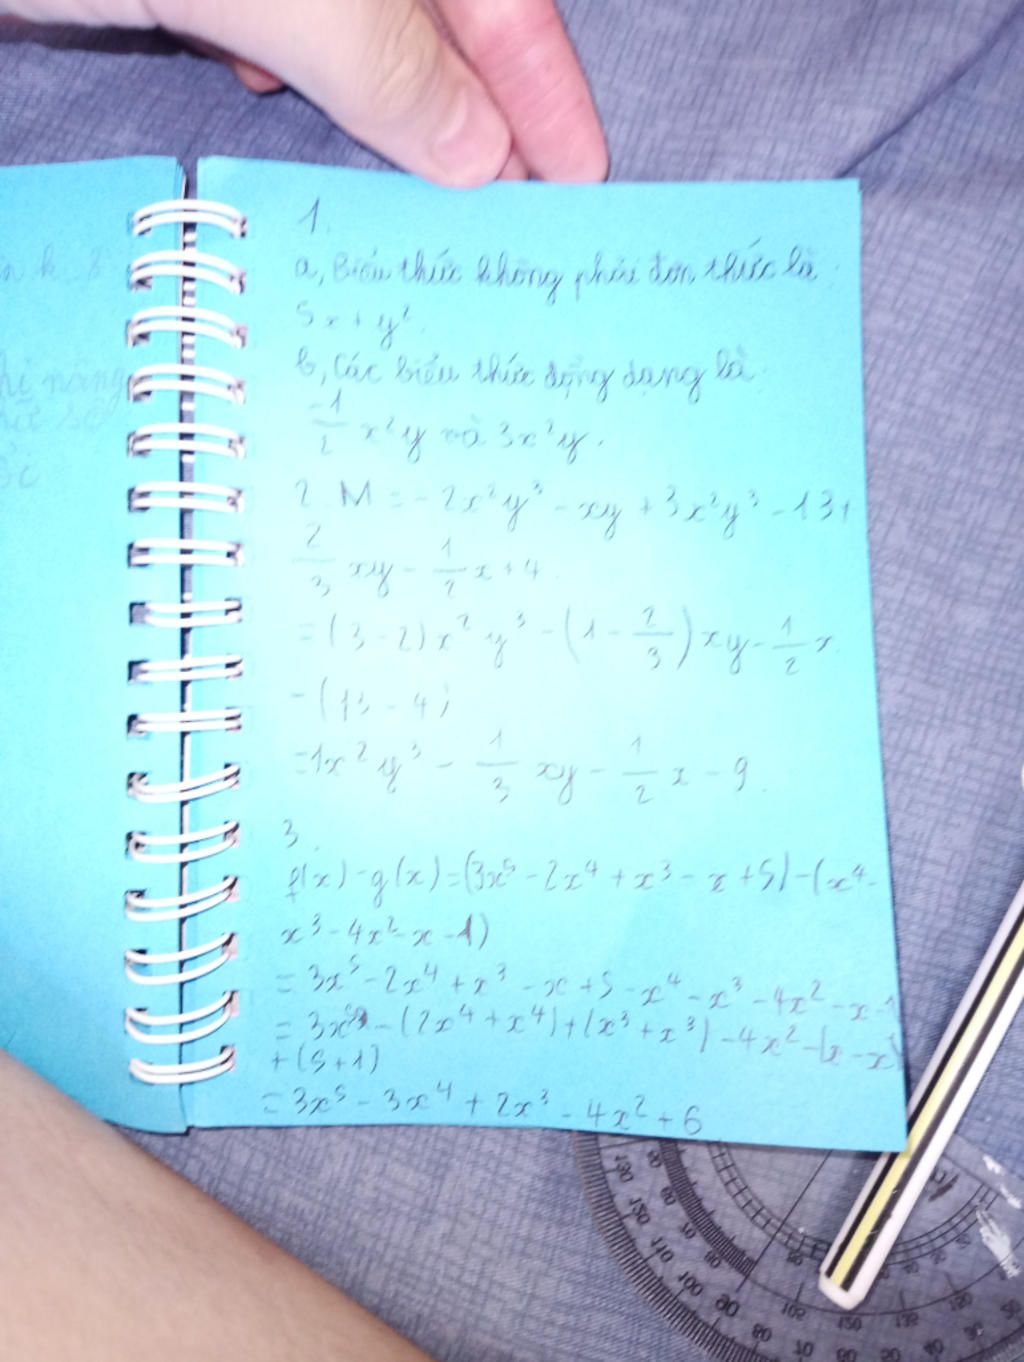 1.
a, Biểu thức không phải đơn thức là
5x + y².
b, Các biểu thức đồng dạng là
-1/2 x²y và 3x²y.
2. M = - 2x²y³ - xy + 3x²y³ - 13 +
2/3 xy - 1/2 x + 4
= (3 - 2) x² y³ - (1 - 2/3) xy - 1/2 x
- (13 - 4)
= 1x² y³ - 1/3 xy - 1/2 x - 9.
3.
f(x) - g(x) = (3x⁵ - 2x⁴ + x³ - x + 5) - (x⁴ -
x³ - 4x² - x - 1)
= 3x⁵ - 2x⁴ + x³ - x + 5 - x⁴ - x³ - 4x² - x - 1
= 3x⁵ - (2x⁴ + x⁴) + (x³ + x³) - 4x² - (x - x)
+ (5 + 1)
= 3x⁵ - 3x⁴ + 2x³ - 4x² + 6